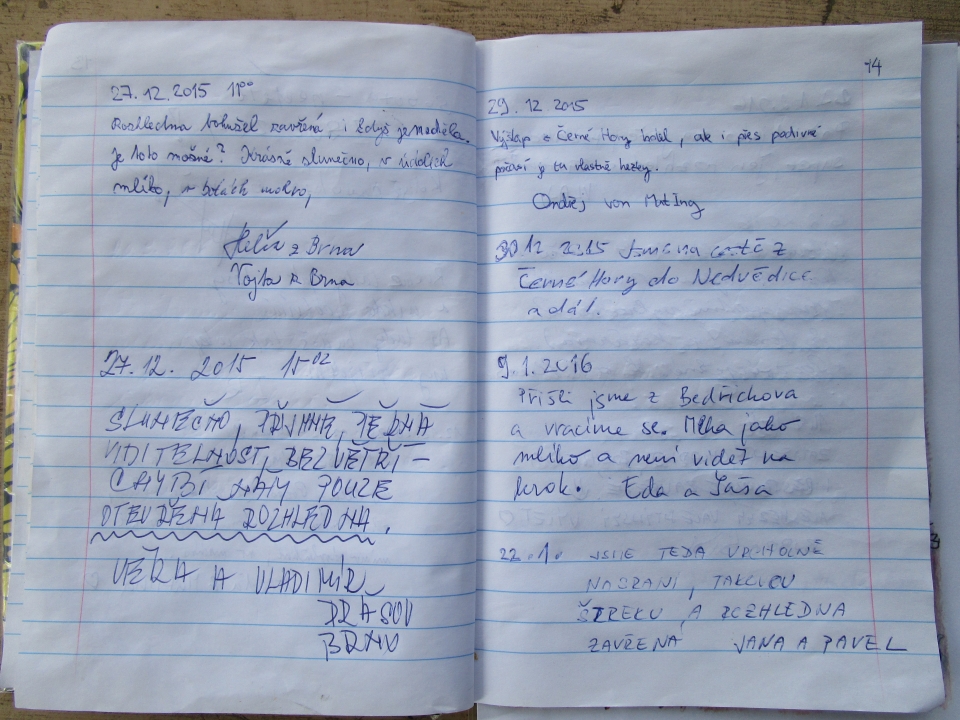 27.12.2015 11⁰⁰
Rozhledna bohužel zavřená, i když je neděla.
Je toto možné? Krásné slunečno, v údolích
mlíko, v botách mokro,
z Brna
Vojta z Brna
27.12. 2015 15⁰²
SLUNEČNO, PŘÍJEMNĚ,
VIDITELNOST, BEZVĚTŘÍ –
CHYBÍ POUZE
OTEVŘENÁ ROZHLEDNA.
VĚRA A VLADIMÍR
DRÁSOV
BRNO
14
29.12.2015
Výšlap z Černé Hory bolel, ale i přes podivné
počasí je tu vlastně hezky.
Ondřej von
30.12 2015 Jsme na cestě z
Černé Hory do Nedvědice
a dál.
9.1.2016
Přišli jsme z Bedřichova
a vracíme se. Mlha jako
mlíko a není videt na
krok. Eda a Jáša
22.1. JSME TEDA VRCHOLNĚ
NASRANÍ, TAKOVOU
ŠTREKU A ROZHLEDNA
ZAVŘENÁ JANA A PAVEL